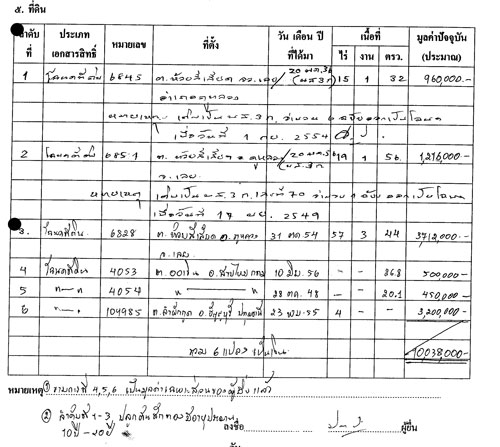 ๕. ที่ดิน
ลำดับที่ ประเภทเอกสารสิทธิ์ หมายเลข ที่ตั้ง วัน เดือน ปี ที่ได้มา เนื้อที่ ไร่ งาน ตรว. มูลค่าปัจจุบัน (ประมาณ)
1 โฉนดที่ดิน 6845 ต. ห้วยสีเสียด 20 พค.36 (นส.3ก) 15 1 32 960,000.-
อำเภอภูหลวง
หมายเหตุ เดิมเป็น นส.3ก. จำนวน ออกเป็นโฉนด
เมื่อวันที่ 1 กย. 2554
2 โฉนดที่ดิน 6851 ต. ห้วยสีเสียด อ. ภูหลวง 19 1 56. 1,216,000.-
จ. เลย
หมายเหตุ เดิมเป็น นส.3ก. เลขที่ 70 จำนวน 1 ออกเป็นโฉนด
เมื่อวันที่ 14 2549
3. โฉนดที่ดิน 6828 ต. ห้วยสีเสียด อ. ภูหลวง 31 ตค 54 57 3 44 3,712,000.-
จ. เลย
4 โฉนดที่ดิน 4053 ต. ออเงิน อ. สายไหม กทม 10 มิย. 56 - - 36.8 500,000.-
5 " 4054 " 28 ตค. 48 - - 20.1 450,000.-
6 " 104985 ต. ลำผักกูด อ. ธัญบุรี ปทุมธานี 23 55 4 - - 3,200,000.-
รวม 6 แปลง เป็นเงิน 10,038,000.-
หมายเหตุ ① รายการที่ 4,5,6 เป็นมูลค่าเฉพาะส่วนของผู้ยื่น แล้ว
② ลำดับที่ 1-3, ปลูกต้นสักทองมีอายุประมาณ
10 ปี - 20 ปี ลงชื่อ ผู้ยื่น